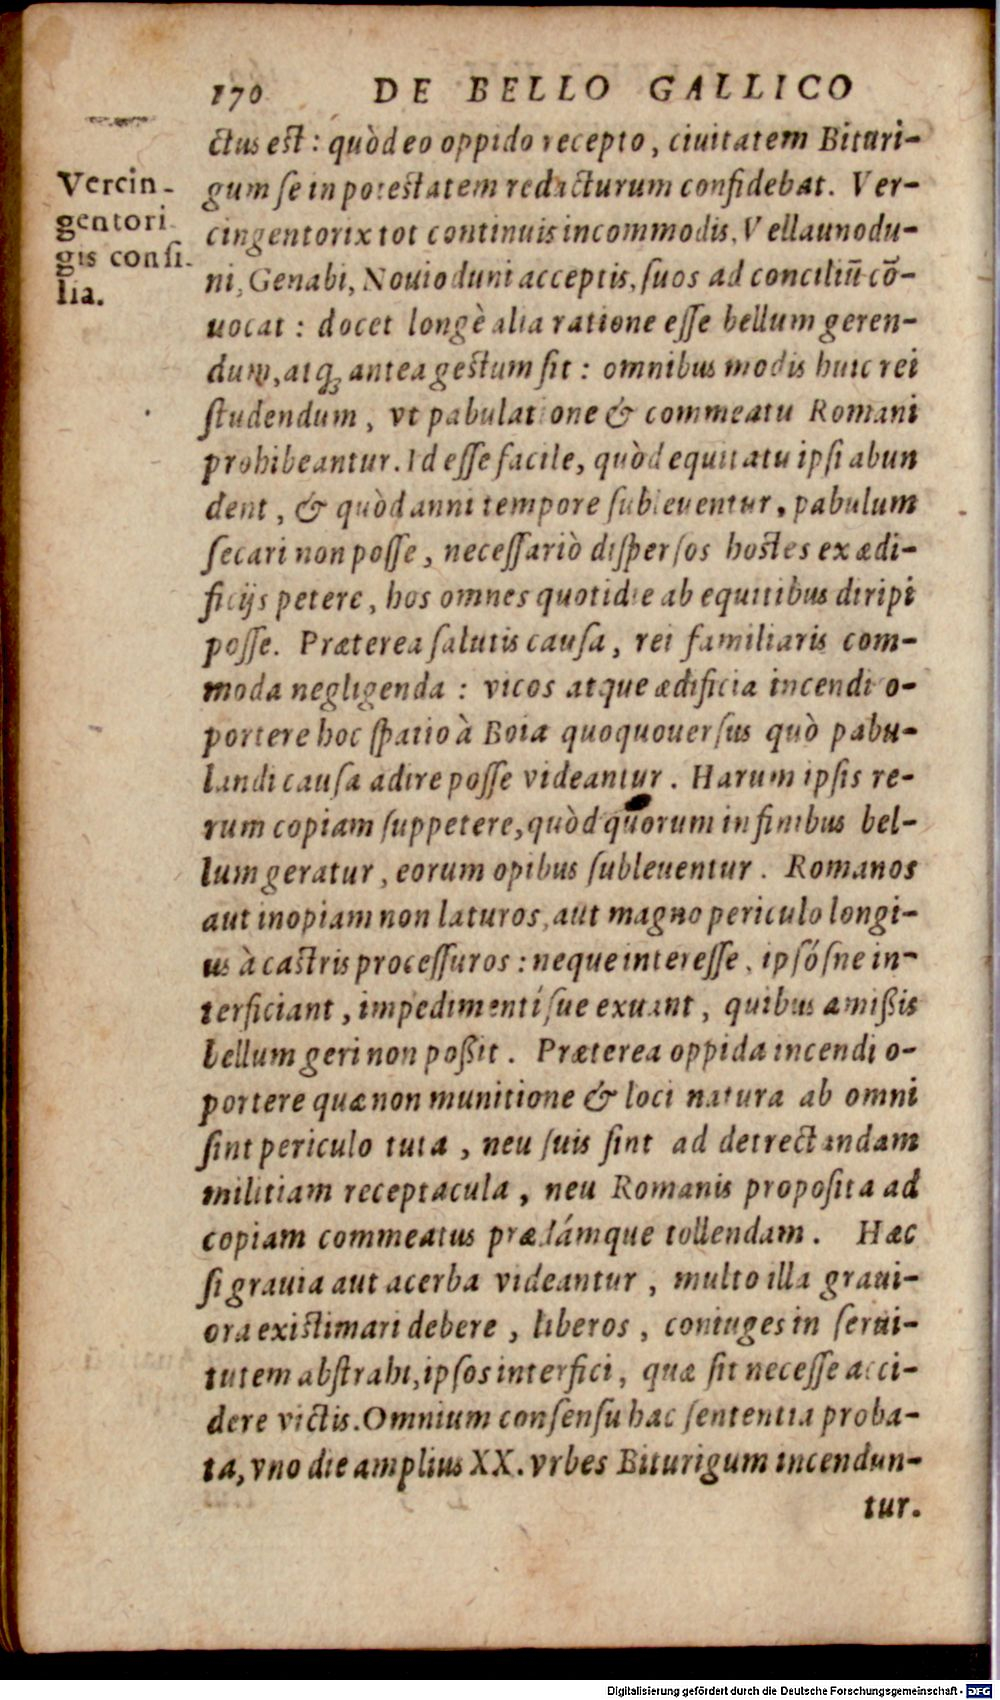 170 DE BELLO GALLICO
ctus est: quòd eo oppido recepto, ciuitatem Bituri-
gum se in potestatem redacturum confidebat. Ver-
cingentorix tot continuis incommodis, Vellaunodu-
ni, Genabi, Nouioduni acceptis, suos ad conciliũ cō-
uocat: docet longè alia ratione esse bellum geren-
dum, atq; antea gestum sit: omnibus modis huic rei
studendum, vt pabulatione & commeatu Romani
prohibeantur. Id esse facile, quòd equitatu ipsi abun
dent, & quòd anni tempore subleuentur, pabulum
secari non posse, necessariò dispersos hostes ex ædi-
ficijs petere, hos omnes quotidie ab equitibus diripi
posse. Præterea salutis causa, rei familiaris com-
moda negligenda: vicos atque ædificia incendi o-
portere hoc spatio à Boia quoquouersus quò pabu-
landi causa adire posse videantur. Harum ipsis re-
rum copiam suppetere, quòd quorum in finibus bel-
lum geratur, eorum opibus subleuentur. Romanos
aut inopiam non laturos, aut magno periculo longi-
us à castris processuros: neque interesse, ipsósne in-
terficiant, impedimentísue exuant, quibus amißis
bellum geri non poßit. Præterea oppida incendi o-
portere quæ non munitione & loci natura ab omni
sint periculo tuta, neu suis sint ad detrectandam
militiam receptacula, neu Romanis proposita ad
copiam commeatus prædámque tollendam. Hæc
si grauia aut acerba videantur, multo illa graui-
ora existimari debere, liberos, coniuges in serui-
tutem abstrahi, ipsos interfici, quæ sit necesse acci-
dere victis. Omnium consensu hac sententia proba-
ta, vno die amplius XX. vrbes Biturigum incendun-
tur.
Vercin-
gentori
gis consi-
lia.
Digitalisierung gefördert durch die Deutsche Forschungsgemeinschaft - DFG